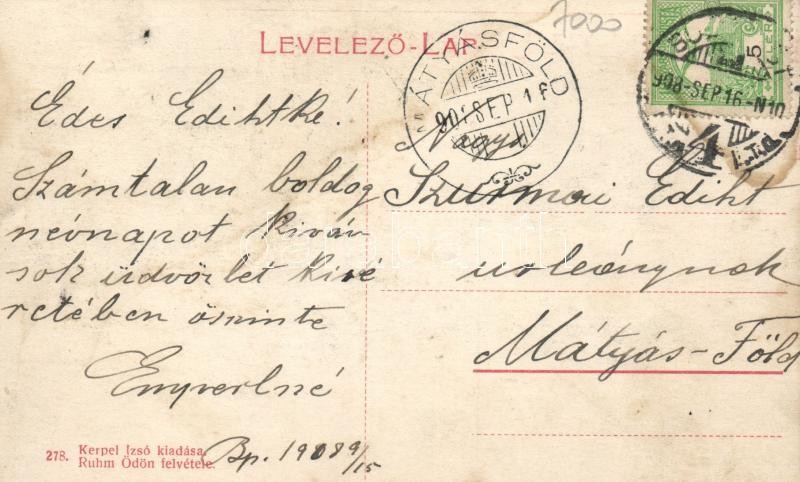 7000
LEVELEZŐ-LAP
MÁTYÁSFÖLD
908 SEP 16
908-SEP.16-N10
4
Édes Edihtke!
Számtalan boldog
névnapot kiván
sok üdvözlet kisé
retében őszinte
Nagys.
Szurmai Ediht
urleánynak
Mátyás-Föld
278. Kerpel Izsó kiadása.
Ruhm Ödön felvétele.
Bp. 1908 9/15